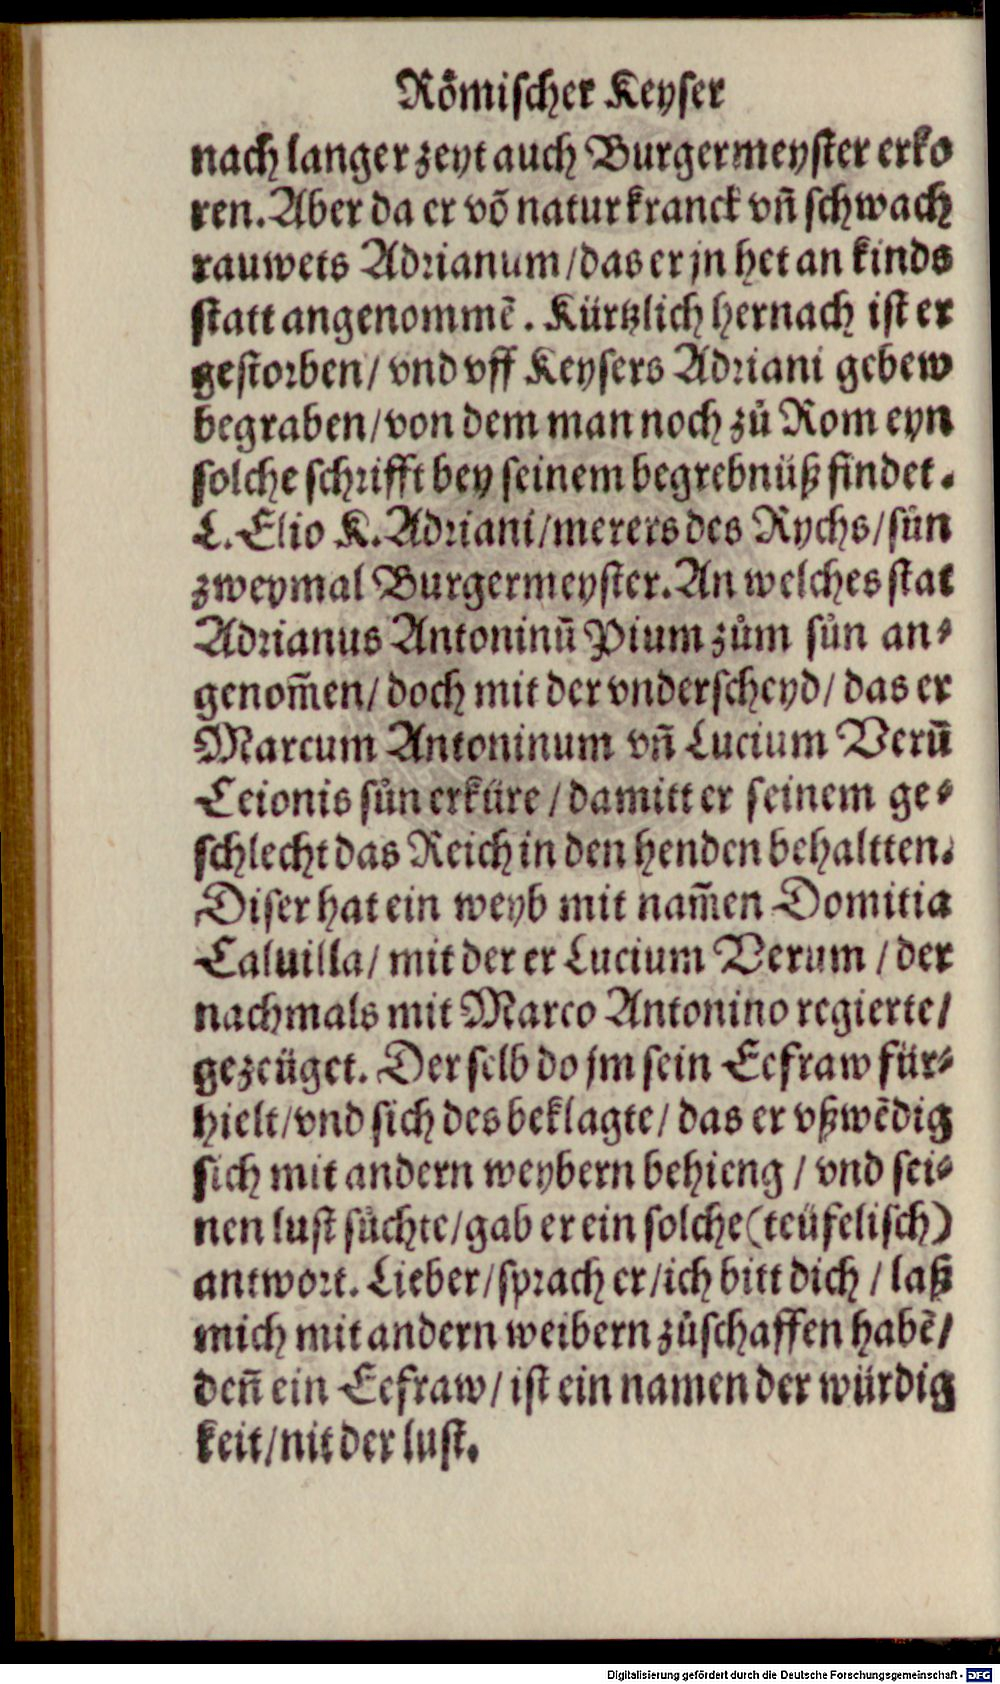 Roͤmischer Keyser
nach langer zeyt auch Burgermeyster erko
ren. Aber da er võ natur kranck vñ schwach
rauwets Adrianum / das er jn het an kinds
statt angenommẽ. Kürtzlich hernach ist er
gestorben / vnd vff Keysers Adriani gebew
begraben / von dem man noch zuͦ Rom eyn
solche schrifft bey seinem begrebnüß findet.
L. Elio K. Adriani / merers des Rychs / suͦn
zweymal Burgermeyster. An welches stat
Adrianus Antoninũ Pium zuͦm suͦn an⸗
genom̃en / doch mit der vnderscheyd / das er
Marcum Antoninum vñ Lucium Verũ
Ceionis suͦn erküre / damitt er seinem ge⸗
schlecht das Reich in den henden behaltten.
Diser hat ein weyb mit nam̃en Domitia
Caluilla / mit der er Lucium Verum / der
nachmals mit Marco Antonino regierte /
gezeüget. Der selb do jm sein Eefraw für⸗
hielt / vnd sich des beklagte / das er vßwẽdig
sich mit andern weybern behieng / vnd sei⸗
nen lust suͦchte / gab er ein solche (teüfelisch)
antwort. Lieber / sprach er / ich bitt dich / laß
mich mit andern weibern zuͦschaffen habẽ /
deñ ein Eefraw / ist ein namen der würdig
keit / nit der lust.
Digitalisierung gefördert durch die Deutsche Forschungsgemeinschaft - DFG